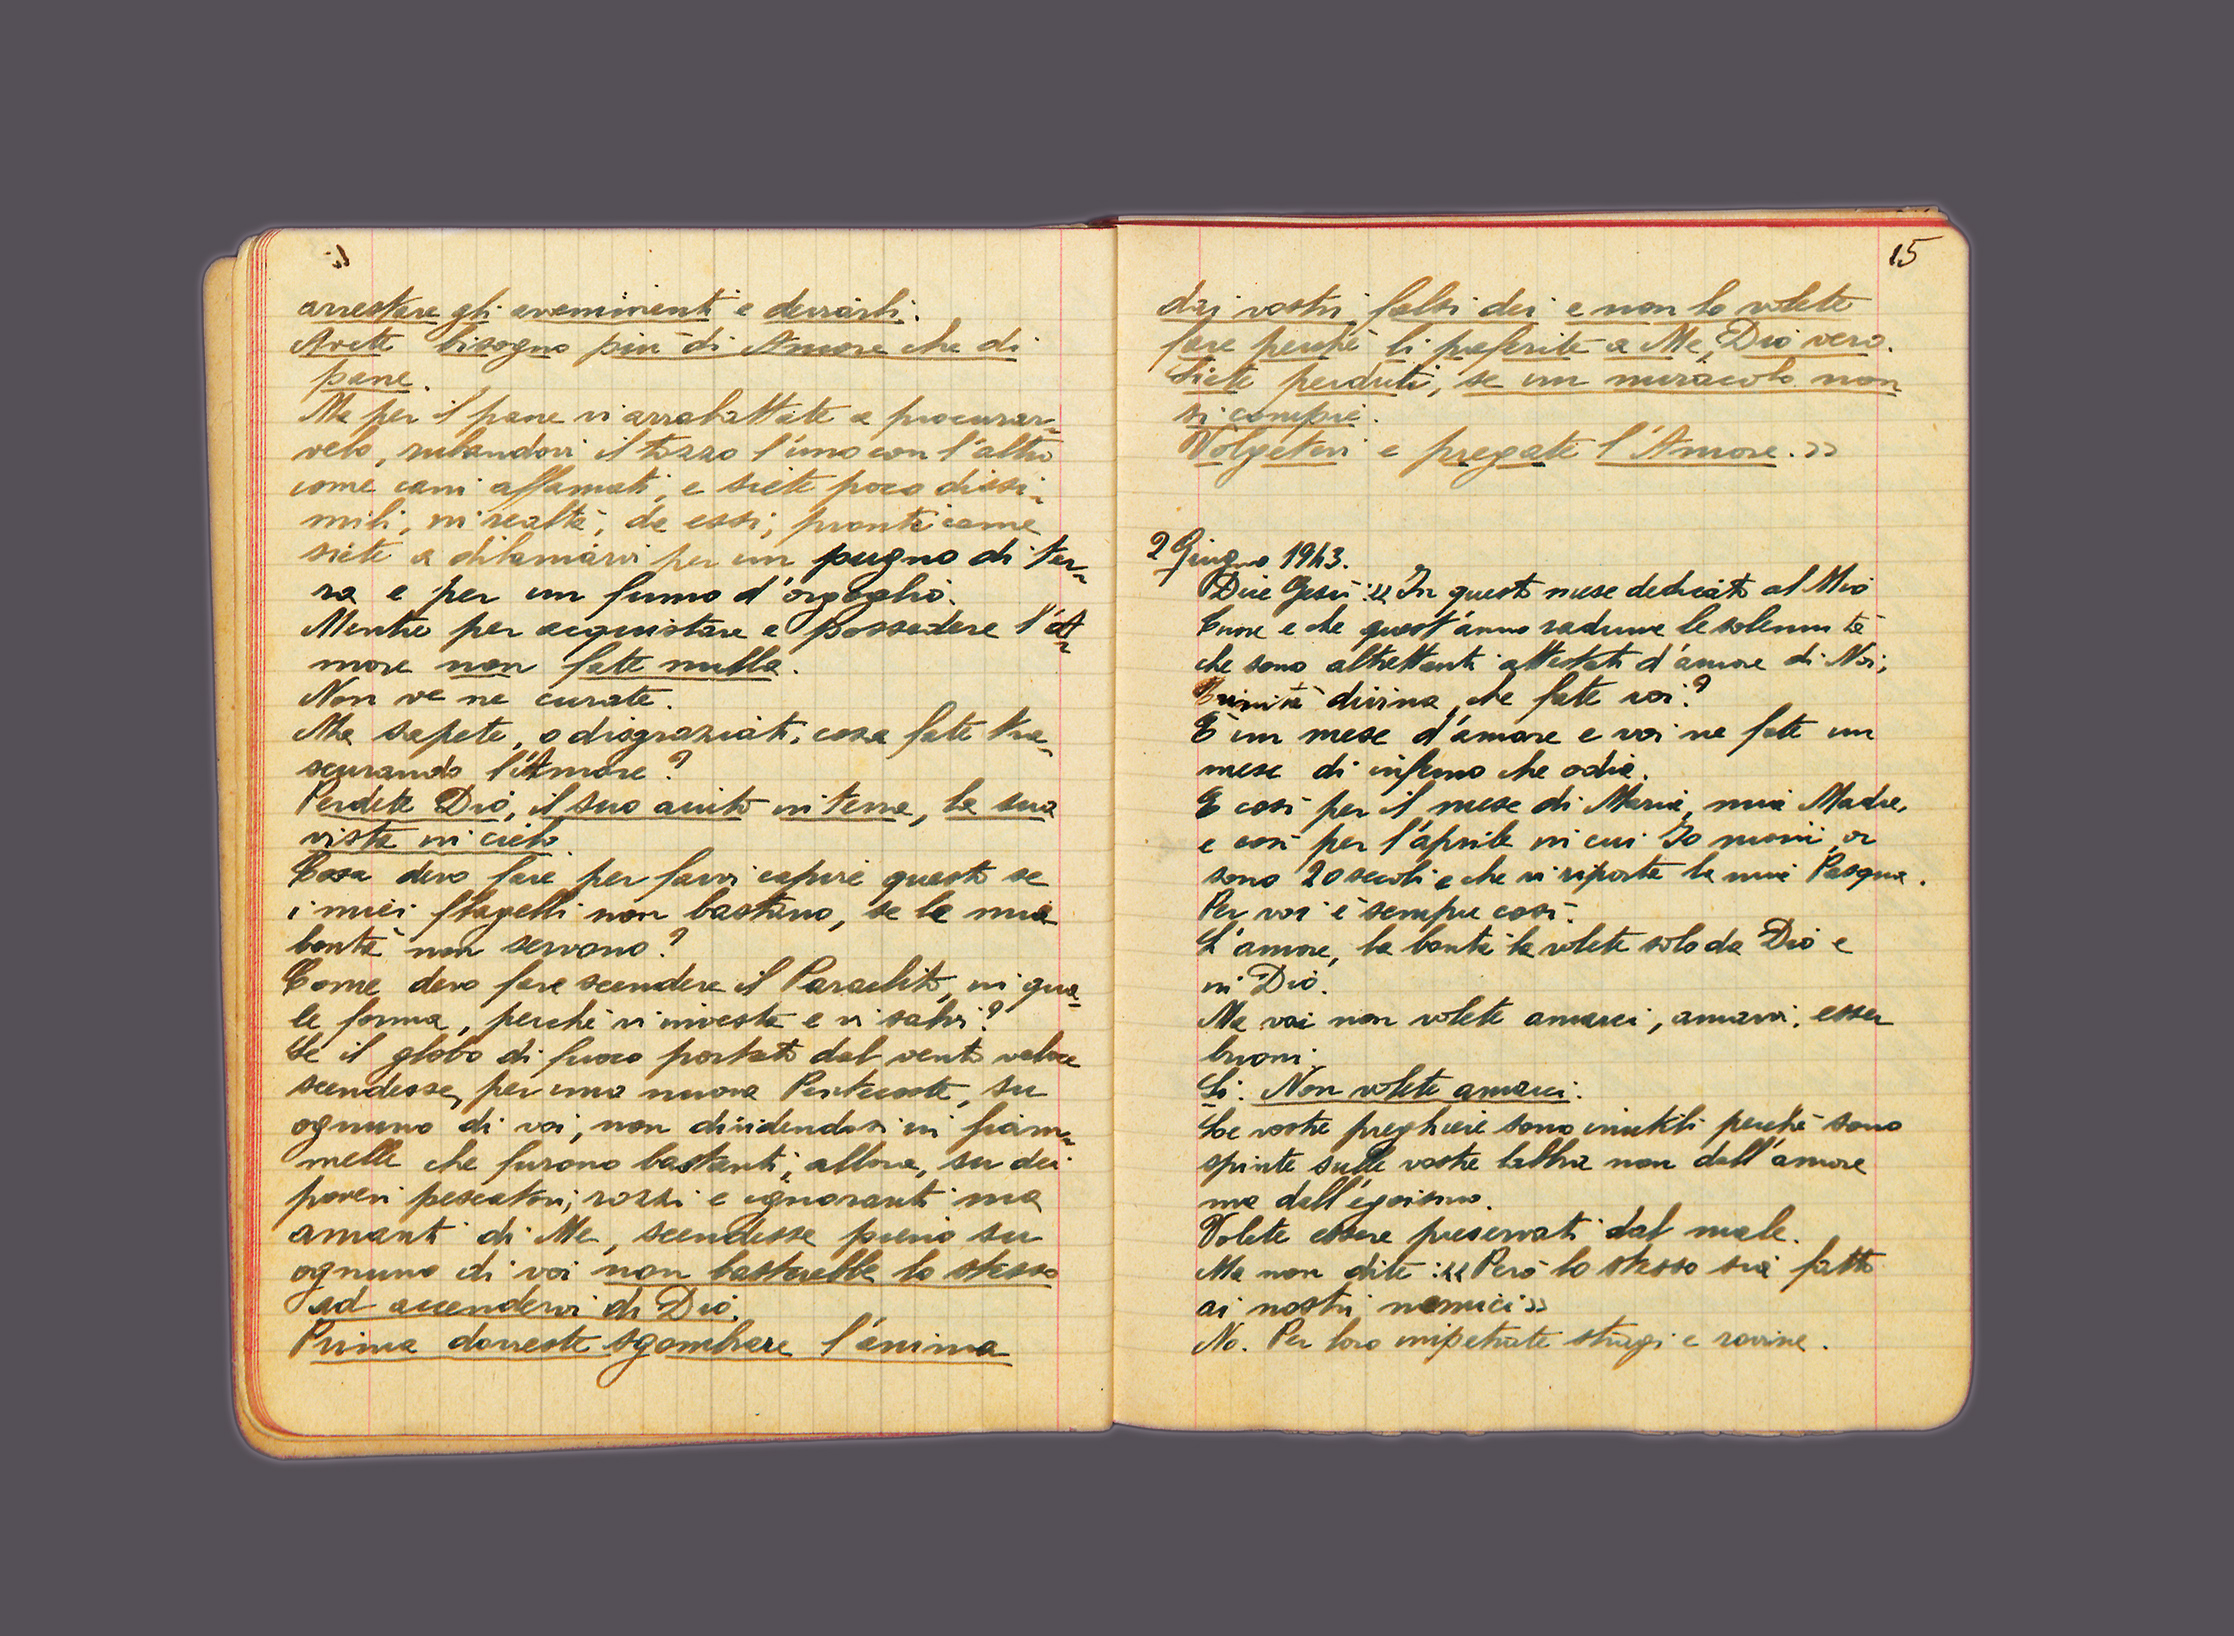 arrestare gli avvenimenti e deviarli.
Avete bisogno più di Amore che di
pane.
Ma per il pane vi arrabattate a procurar-
velo, rubandovi il tozzo l'uno con l'altro
come cani affamati, e siete poco dissi-
mili, in realtà, da essi, pronti come
siete a dilaniarvi per un pugno di ter-
ra e per un fumo d'orgoglio.
Mentre per acquistare e possedere l'A-
more non fate nulla.
Non ve ne curate.
Ma sapete, o disgraziati, cosa fate tra-
scurando l'Amore?
Perdete Dio, il suo aiuto in terra, la sua
vista in cielo.
Cosa devo fare per farvi capire questo se
i miei flagelli non bastano, se la mia
bontà non servono?
Come devo fare scendere il Paraclito, in qua-
le forma, perché vi investa e vi salvi?
Se il globo di fuoco portato dal vento veloce
scendesse, per una nuova Pentecoste, su
ognuno di voi, non dividendosi in fiam-
melle che furono bastanti, allora, su dei
poveri pescatori, rozzi e ignoranti ma
amanti di Me, scendesse pieno su
ognuno di voi non basterebbe lo stesso
ad accendervi di Dio.
Prima dovreste sgombrare l'anima
15
dai vostri falsi dei e non lo volete
fare perché li preferite a Me, Dio vero.
Siete perduti, se un miracolo non
si compie.
Volgetevi e pregate l'Amore.»
2 Giugno 1943.
Dice Gesù: «In questo mese dedicato al Mio
Cuore e che quest'anno raduna le solennità
che sono altrettanti attestati d'amore di Noi,
Trinità divina, che fate voi?
È un mese d'amore e voi ne fate un
mese di inferno che odia.
E così per il mese di Maria, mia Madre,
e così per l'aprile in cui Io morii, or
sono 20 secoli e che vi riporta la mia Pasqua.
Per voi è sempre così.
L'amore, la bontà la volete solo da Dio e
in Dio.
Ma voi non volete amarci, amarvi, esser
buoni.
Sì. Non volete amarci.
Le vostre preghiere sono inutili perché sono
spinte sulle vostre labbra non dall'amore
ma dall'egoismo.
Volete essere preservati dal male.
Ma non dite: «Però lo stesso sia fatto
ai nostri nemici»
No. Per loro impetrate stragi e rovine.